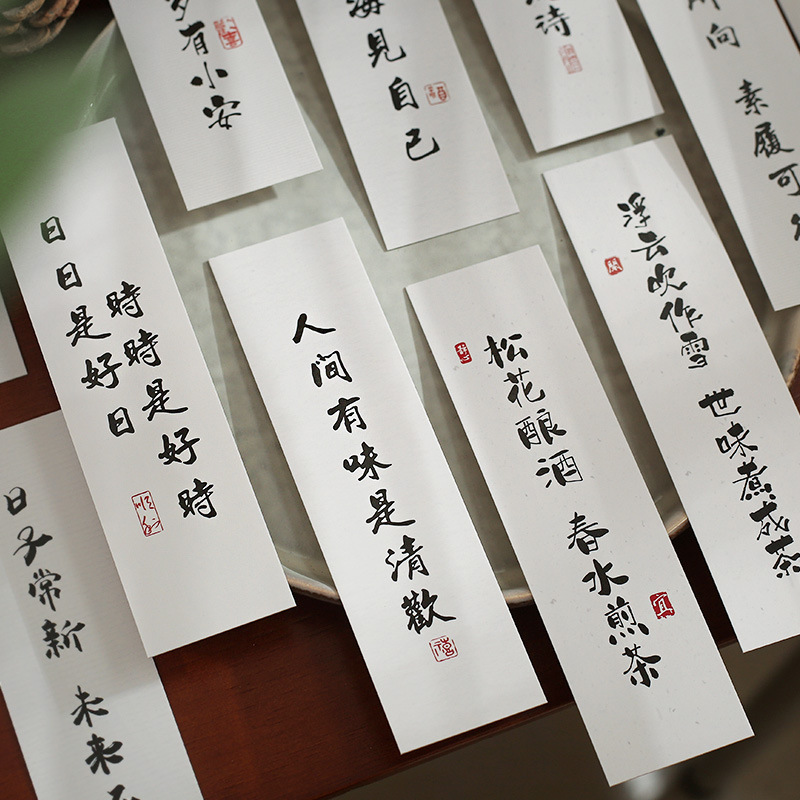 有小安
海見自己
诗
向 素履可
日日是好日
時時是好時
人间有味是清歡
禧
松花酿酒 春水煎茶
宜
浮云吹作雪 世味煮成茶
日子常新 未来